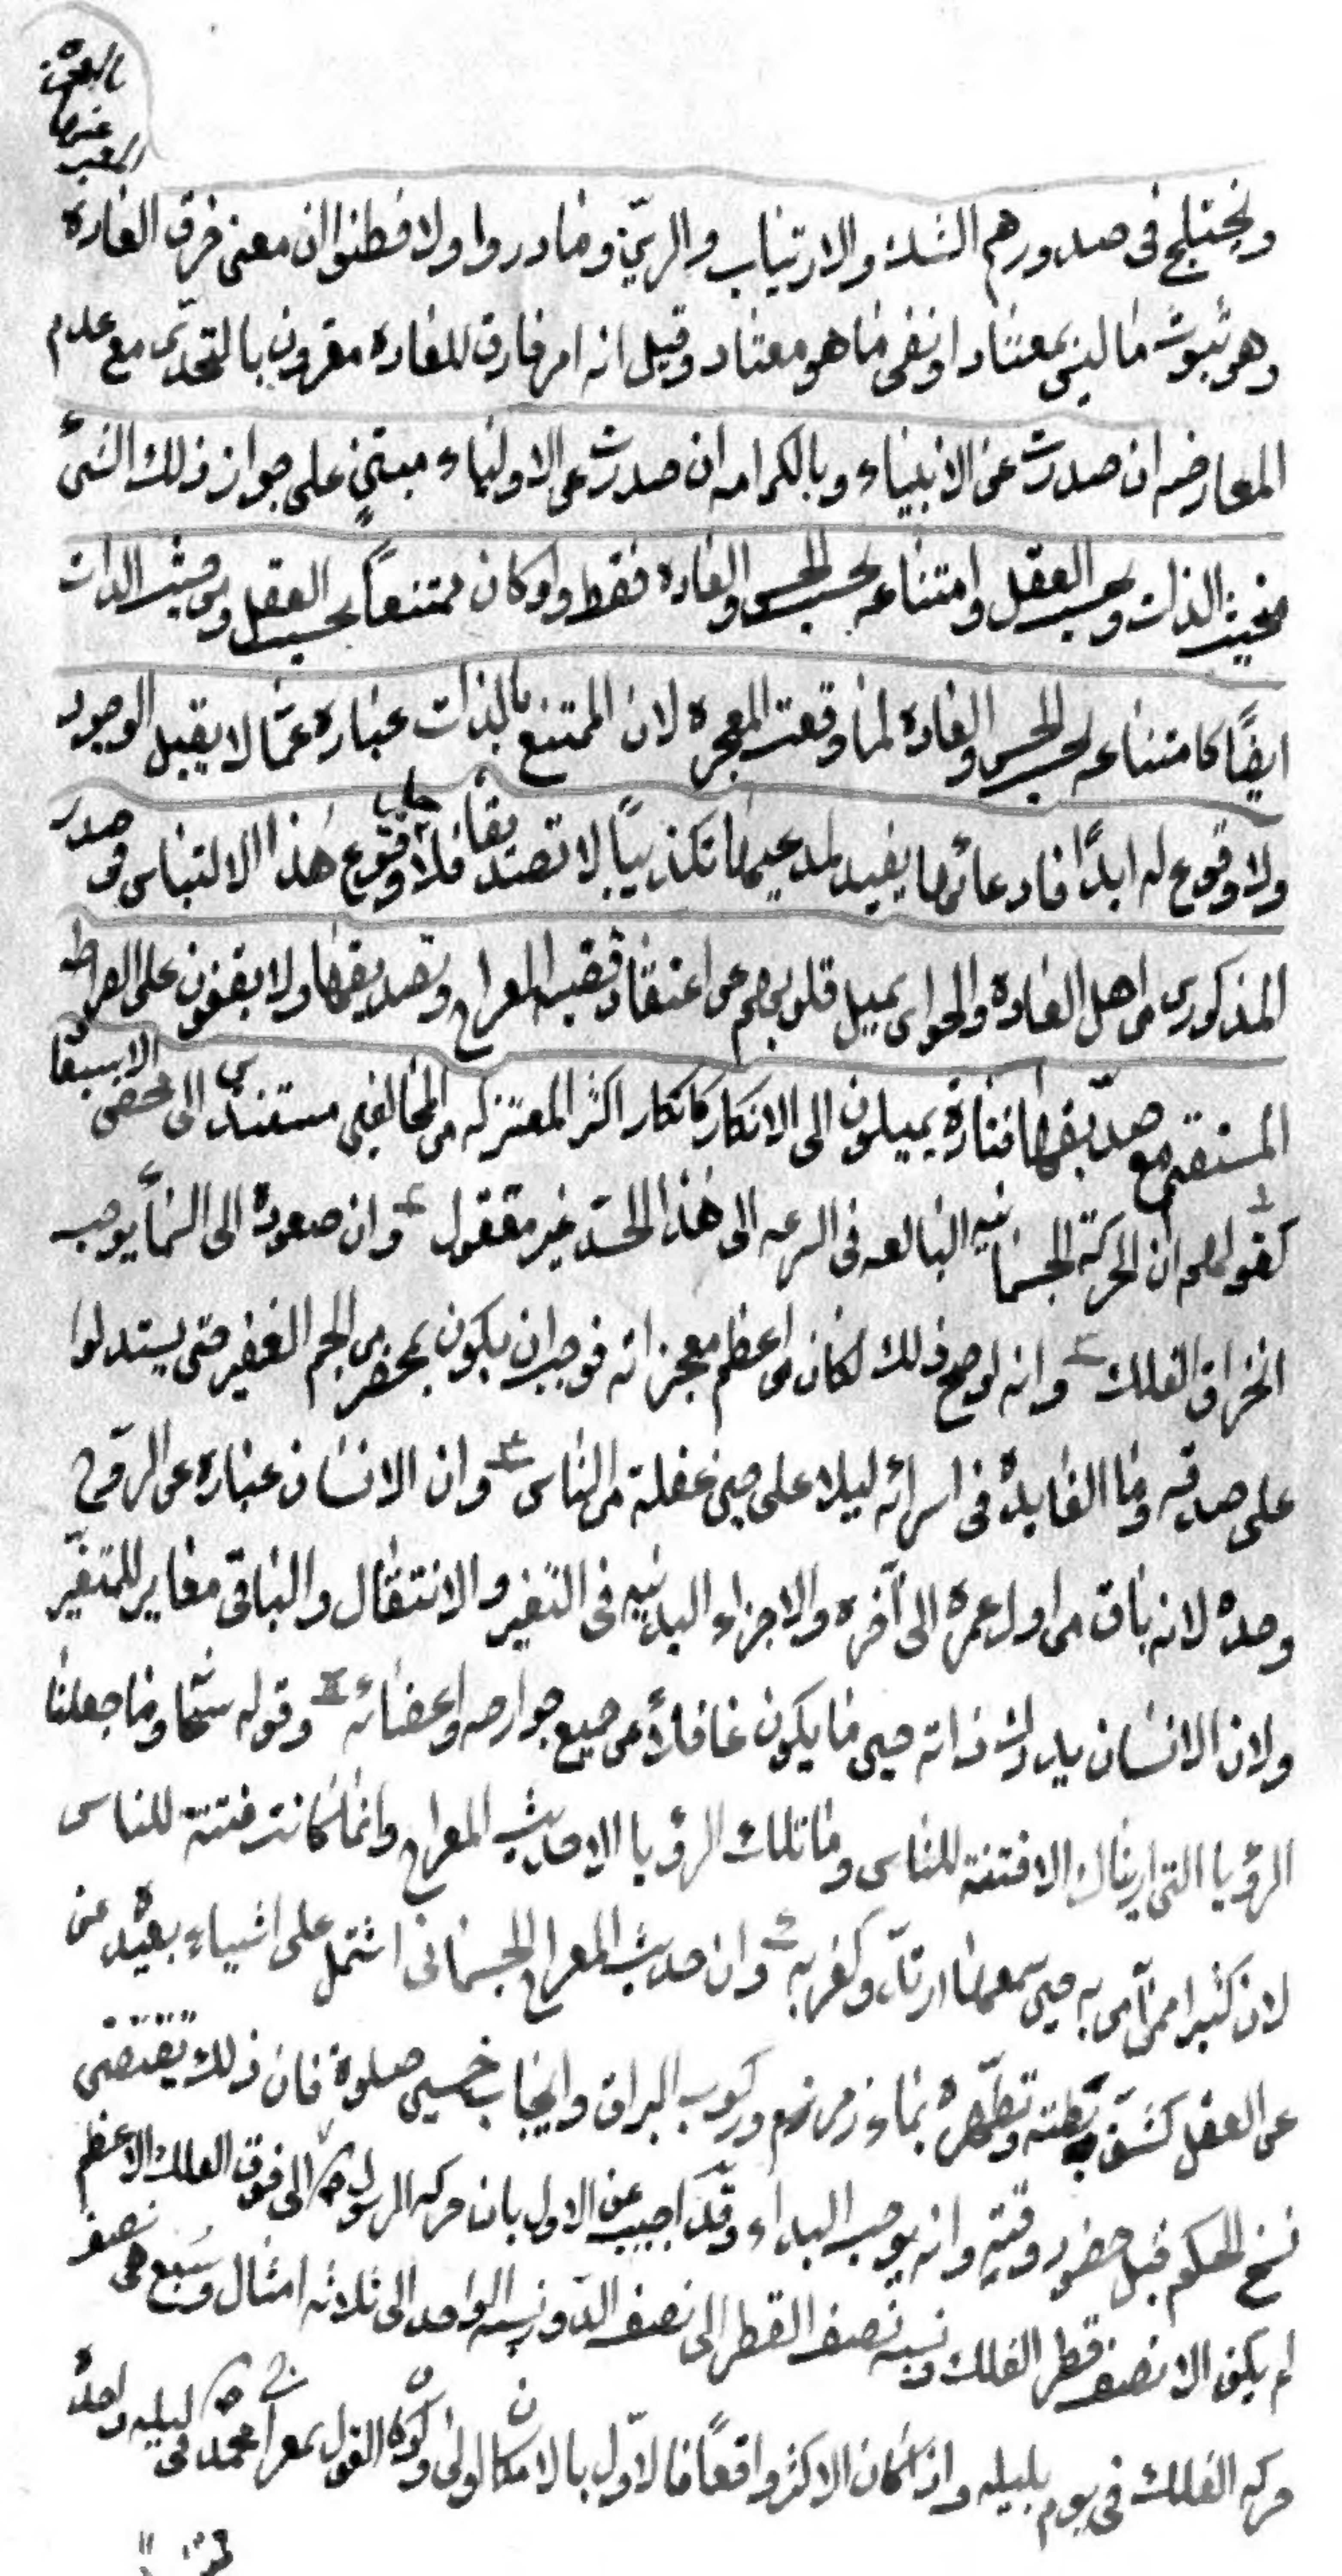 ويختلج فى صدورهم الشك والارتياب والريب وما دروا ولا فطنوا ان معنى خرق العاده
وهو ثبوت ما ليس بمعتاد او نفى ما هو معتاد وقيل انه امر خارق للعاده مقرون بالتحدى مع عدم
المعارضه ان صدرت عن الانبياء وبالكرامه ان صدرت عن الاولياء مبتنٍ على جواز ذلك الشىء
من حيث الذات وبحسب العقل وامتناعه بحسب الحس والعاده فقط ولو كان ممتنعاً بحسب العقل ومن حيث الذات
ايضًا كامتناعه بحسب الحس والعاده لما وقعت المعجزه لان الممتنع بالذات عباره عمّا لا يقبل الوجود
ولا وقوع له ابدًا فادعائها يفيد لمدعيها تكذيبًا لا تصديقا فلا وقوع هذا الالتباس فى صدر
المذكورين من اهل العاده والحواس يميل قلوبهم عن اعتقاد قضيه المعراج وتصديقها ولا يقفون على الصراط
المستقيم مع صدّيقها فتارة يميلون الى الانكار كانكار اكثر المعتزله من المخالفين مستندين الى محض الاستبعاد
كقولهم ان الحركة الجسمانيه البالغه فى السرعه الى هذا الحدّ غير معقول وان صعوده الى السماء يوجب
انخراق الفلك وانه لو صح ذلك لكان من اعظم معجزاته فوجب ان يكون بمحضر من الجم الغفير حتى يستدلوا
على صدقه وما الفايدة فى اسرائه ليلا على حين غفلة من الناس وان الانسان عباره عن الروح
وحده لانه باق من اول عمره الى آخره والاجزاء البدنيه فى التغير والانتقال والباقى مغاير للمتغيّر
ولان الانسان يدرك ذاته حين ما يكون غافلاً عن جميع جوارحه واعضائه وقوله تعالى وما جعلنا
الرؤيا التى اريناك الا فتنة للناس وما تلك الرؤيا الا حديث المعراج وانما كانت فتنة للناس
لان كثيرا ممن آمن به حين سمعها ارتدّ وكفر به وان حديث المعراج الجسمانى اشتمل على اشياء بعيده عن
عن العقل كشق بطنه وتطهره بماء زمزم وركوب البراق وايجاب خمسين صلوة فان ذلك يقتضى
نسخ الحكم قبل حضور وقته وانه يوجب البداء وقد اجيب عن الاول بان حركه الرسول ص الى فوق الفلك الاعظم
لم يكن الا نصف قطر الفلك ونسبه نصف القطر الى نصف الدور نسبه الواحد الى ثلاثه امثال وسبع نصف
حركه الفلك فى يوم بليله واذا كان الاكثر واقعاً فالاوّل بالامكان اولى وكون القول بمعراج محمد ص فى ليله واحدة